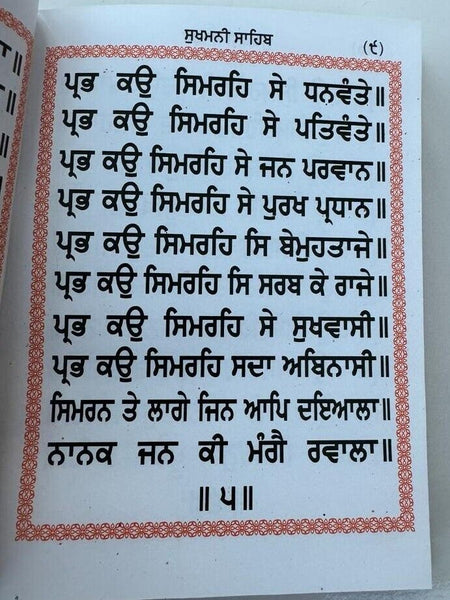 ਸੁਖਮਨੀ ਸਾਹਿਬ (੯)
ਪ੍ਰਭ ਕਉ ਸਿਮਰਹਿ ਸੇ ਧਨਵੰਤੇ॥
ਪ੍ਰਭ ਕਉ ਸਿਮਰਹਿ ਸੇ ਪਤਿਵੰਤੇ॥
ਪ੍ਰਭ ਕਉ ਸਿਮਰਹਿ ਸੇ ਜਨ ਪਰਵਾਨ॥
ਪ੍ਰਭ ਕਉ ਸਿਮਰਹਿ ਸੇ ਪੁਰਖ ਪ੍ਰਧਾਨ॥
ਪ੍ਰਭ ਕਉ ਸਿਮਰਹਿ ਸਿ ਬੇਮੁਹਤਾਜੇ॥
ਪ੍ਰਭ ਕਉ ਸਿਮਰਹਿ ਸਿ ਸਰਬ ਕੇ ਰਾਜੇ॥
ਪ੍ਰਭ ਕਉ ਸਿਮਰਹਿ ਸੇ ਸੁਖਵਾਸੀ॥
ਪ੍ਰਭ ਕਉ ਸਿਮਰਹਿ ਸਦਾ ਅਬਿਨਾਸੀ॥
ਸਿਮਰਨ ਤੇ ਲਾਗੇ ਜਿਨ ਆਪਿ ਦਇਆਲਾ॥
ਨਾਨਕ ਜਨ ਕੀ ਮੰਗੈ ਰਵਾਲਾ॥
॥ ੫॥